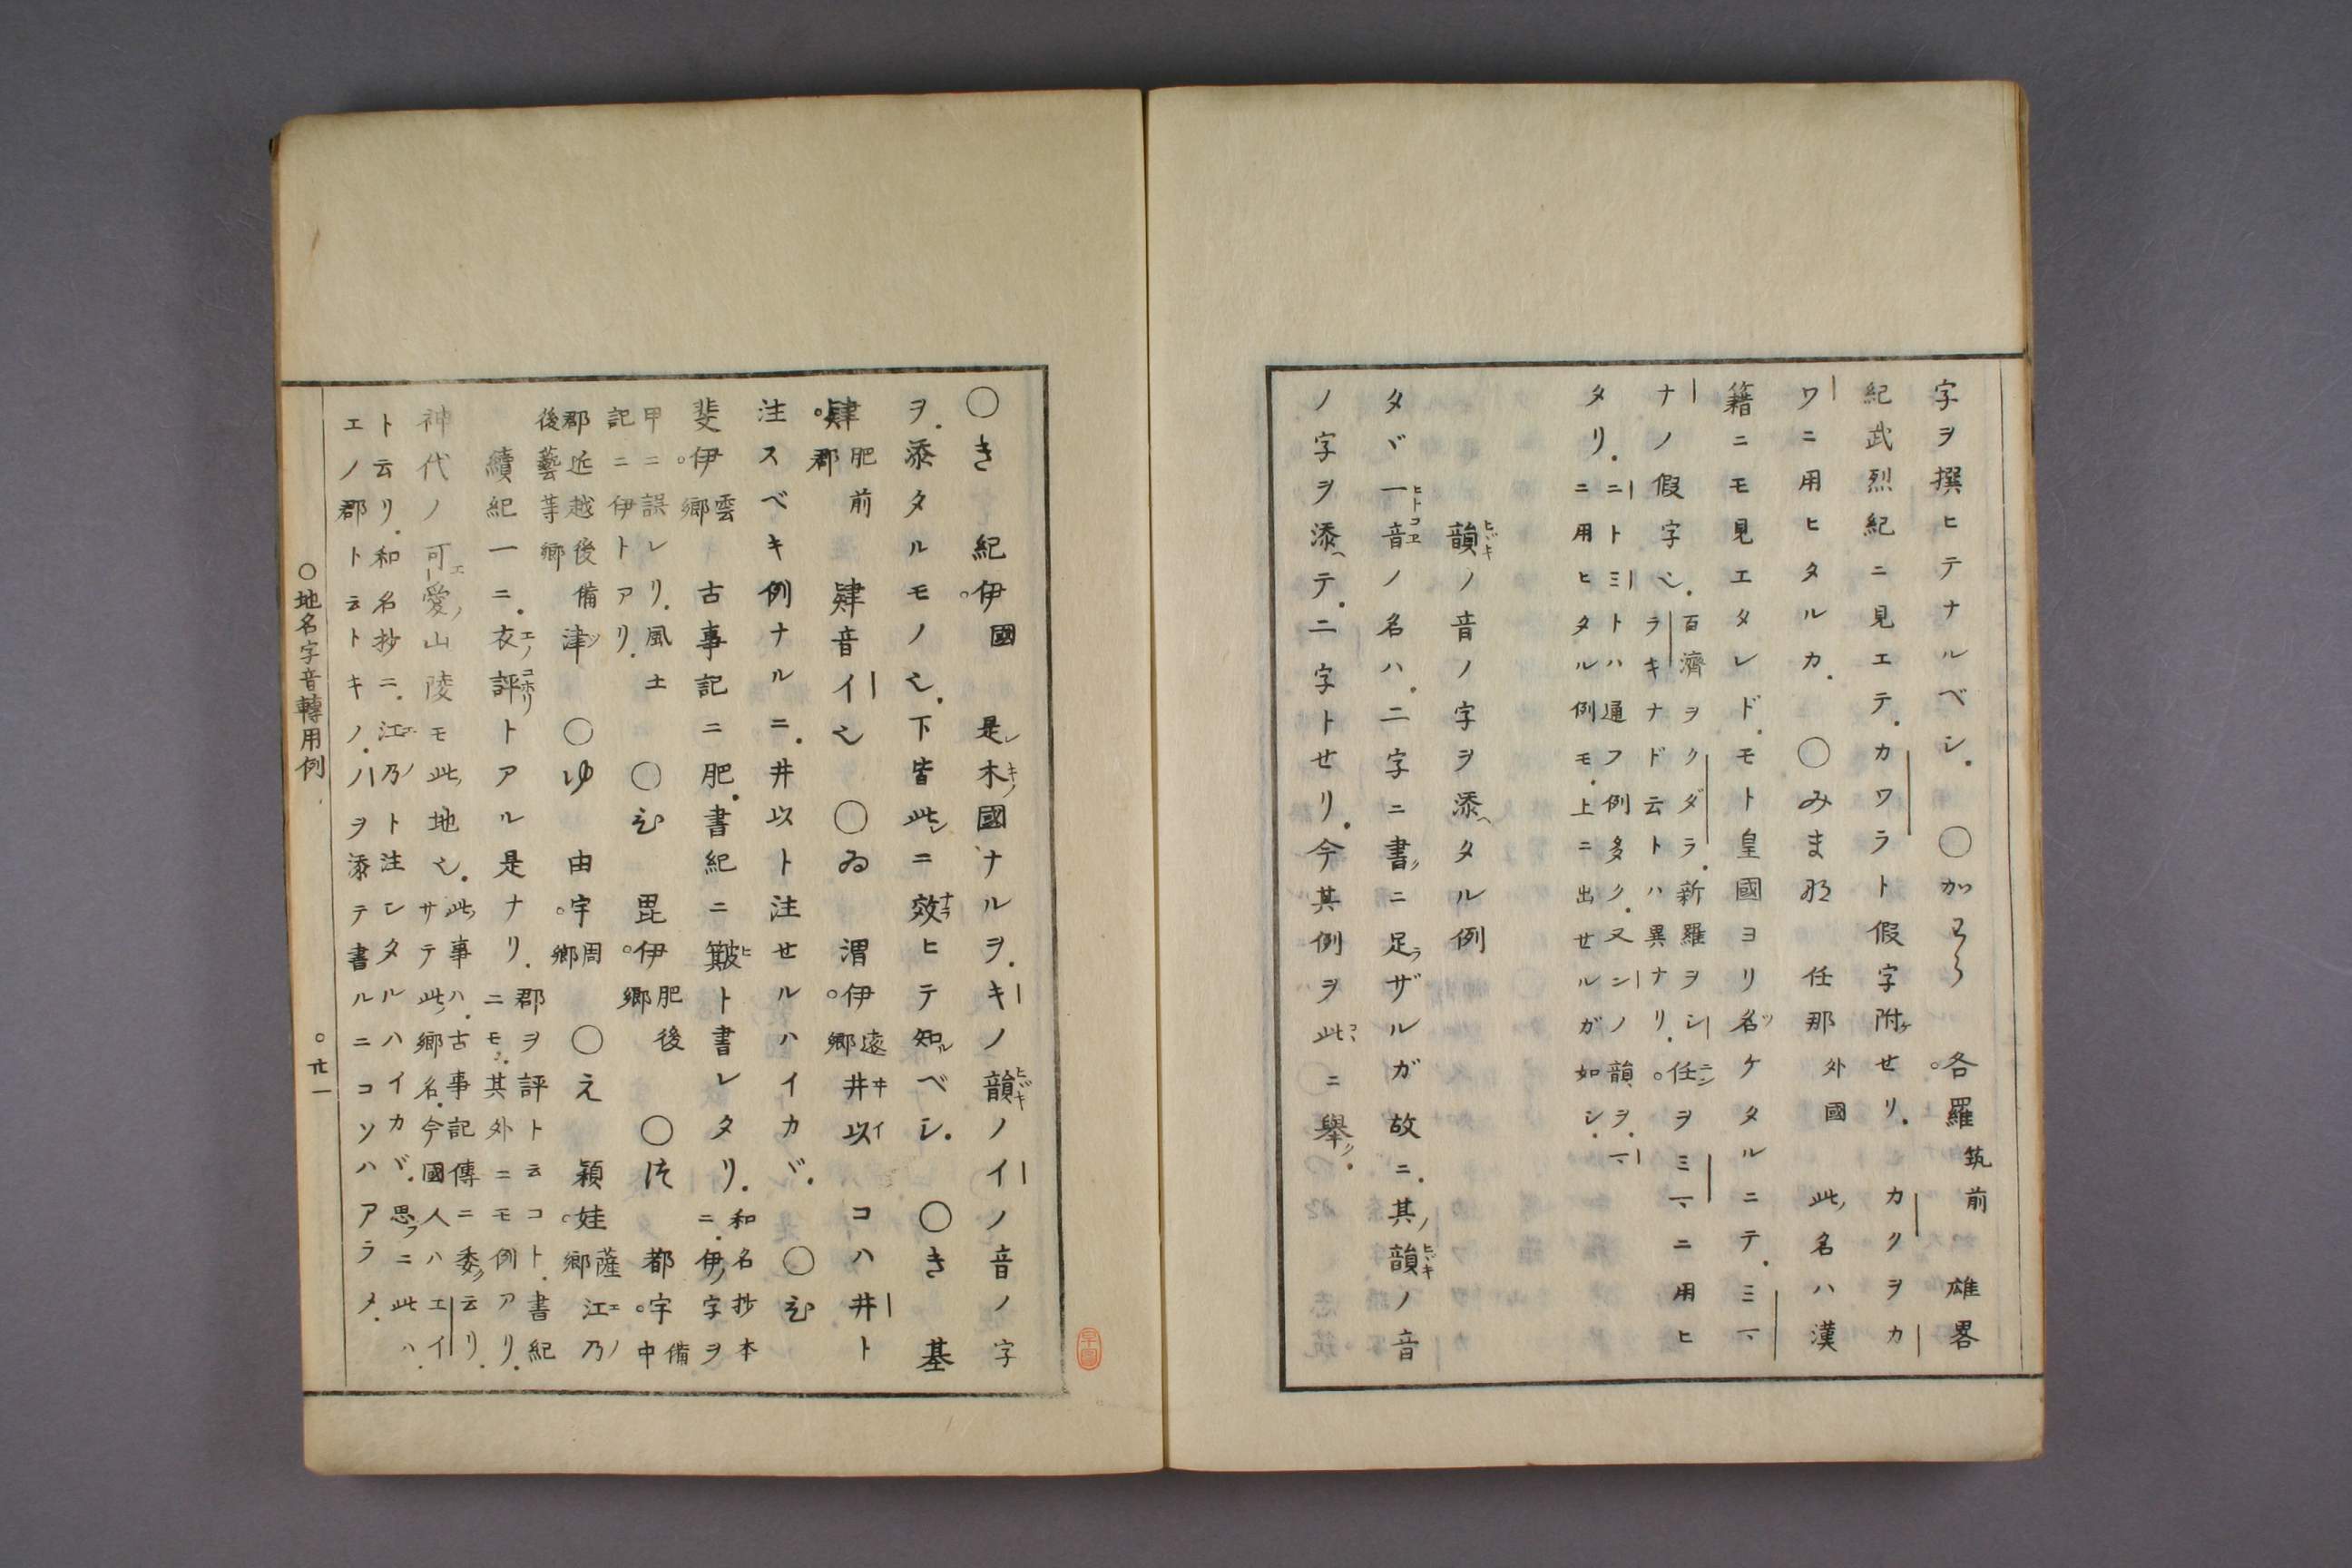 字ヲ撰ヒテナルベシ. ○かわら 各。羅筑前 雄畧
紀武烈紀ニ見エテ.カワラト假字附ケせリ.カクヲカ
ワニ用ヒタルカ. ○みま那 任那外國 此ノ名ハ漢
籍ニモ見エタレド.モト皇國ヨリ名ツケタルニテ.ミマ
ナノ假字也.百濟ヲクダラ.新羅ヲシ
ラキナドヽ云トハ異ナリ.任ニン。ヲミマニ用ヒ
タリ.ニトミトハ通フ例多ク.又ンノ韻ヲ.マ
ニ用ヒタル例モ.上ニ出せルガ如シ.
韻ヒヾキノ音ノ字ヲ添ヘタル例
タヾ一音ヒトコヱノ名ハ.二字ニ書クニ足ラザルガ故ニ.其ノ韻ヒヾキノ音
ノ字ヲ添ヘテ.二字トせリ.今其例ヲ此コヽニ舉ク.
○き 紀伊。國 是レ木キノ國ナルヲ.キノ韻ヒヾキノイノ音ノ字
ヲ.添タルモノ也.下皆此レニ效ナラヒテ知ルベシ. ○き 基
肄。肥前郡 肄音イ也 ○ゐ 渭伊。遠郷 井ヰ以イ コハ井ト
注スベキ例ナルニ.井以ト注せルハイカヾ. ○ひ
斐伊。雲郷 古事記ニ肥.書紀ニ簸ヒト書レタリ.和名抄本ニ.伊ノ字ヲ
甲ニ誤レリ.風土記ニ伊トアリ. ○ひ 毘伊。肥後郷 ○つ 都宇。備中
郡近越後備後藝等郷 津ツ ○ゆ 由宇。周郷 ○え 穎娃。薩郷 江エ乃ノ
續紀一ニ.衣エノ評コホリトアル是ナリ.郡ヲ評ト云コト.書紀ニモ.其外ニモ例アリ.
神代ノ可愛エノ山陵モ此ノ地也.此ノ事ハ.古事記傳ニ委ク云リ.サテ此ノ郷名.今國人ハエイ
ト云リ.和名抄ニ.江エ乃ノト注シタルハイカヾ.思フニ此ハ.
エノ郡ト云トキノ.ノヲ添テ書ルニコソハアラメ.
○地名字音轉用例
○廿一